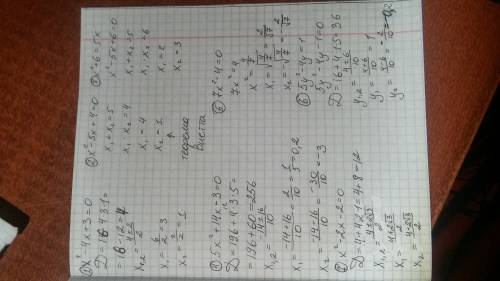 ① x²-4x+3=0
D=16-4·3·1=
=16-12=4
x₁,₂=4±2/2
x₁=6/2=3
x₂=2/2=1
② x²-5x+4=0
x₁+x₂=5
x₁·x₂=4
x₁=4
x₂=1
теорема
Виетта
③ x²+6=5x
x²-5x+6=0
x₁+x₂=5
x₁·x₂=6
x₁=2
x₂=3
④ 5x²+14x-3=0
D=196+4·3·5=
=196+60=256
x₁,₂=-14±16/10
x₁=-14+16/10=2/10=1/5=0,2
x₂=-14-16/10=-30/10=-3
⑤ 7x²-4=0
7x²=4
x²=4/7
x₁=√4/7=2/√7
x₂=-√4/7=-2/√7
⑥ 5y²-4y=1
5y²-4y-1=0
D=16+4·1·5=36
y₁,₂=4±6/10
y₁=4+6/10=1
y₂=4-6/10=-2/10=-0,2
x²-2x-2=0
D=4+4·2·1=4+8=12
x₁,₂=2±2√3/2